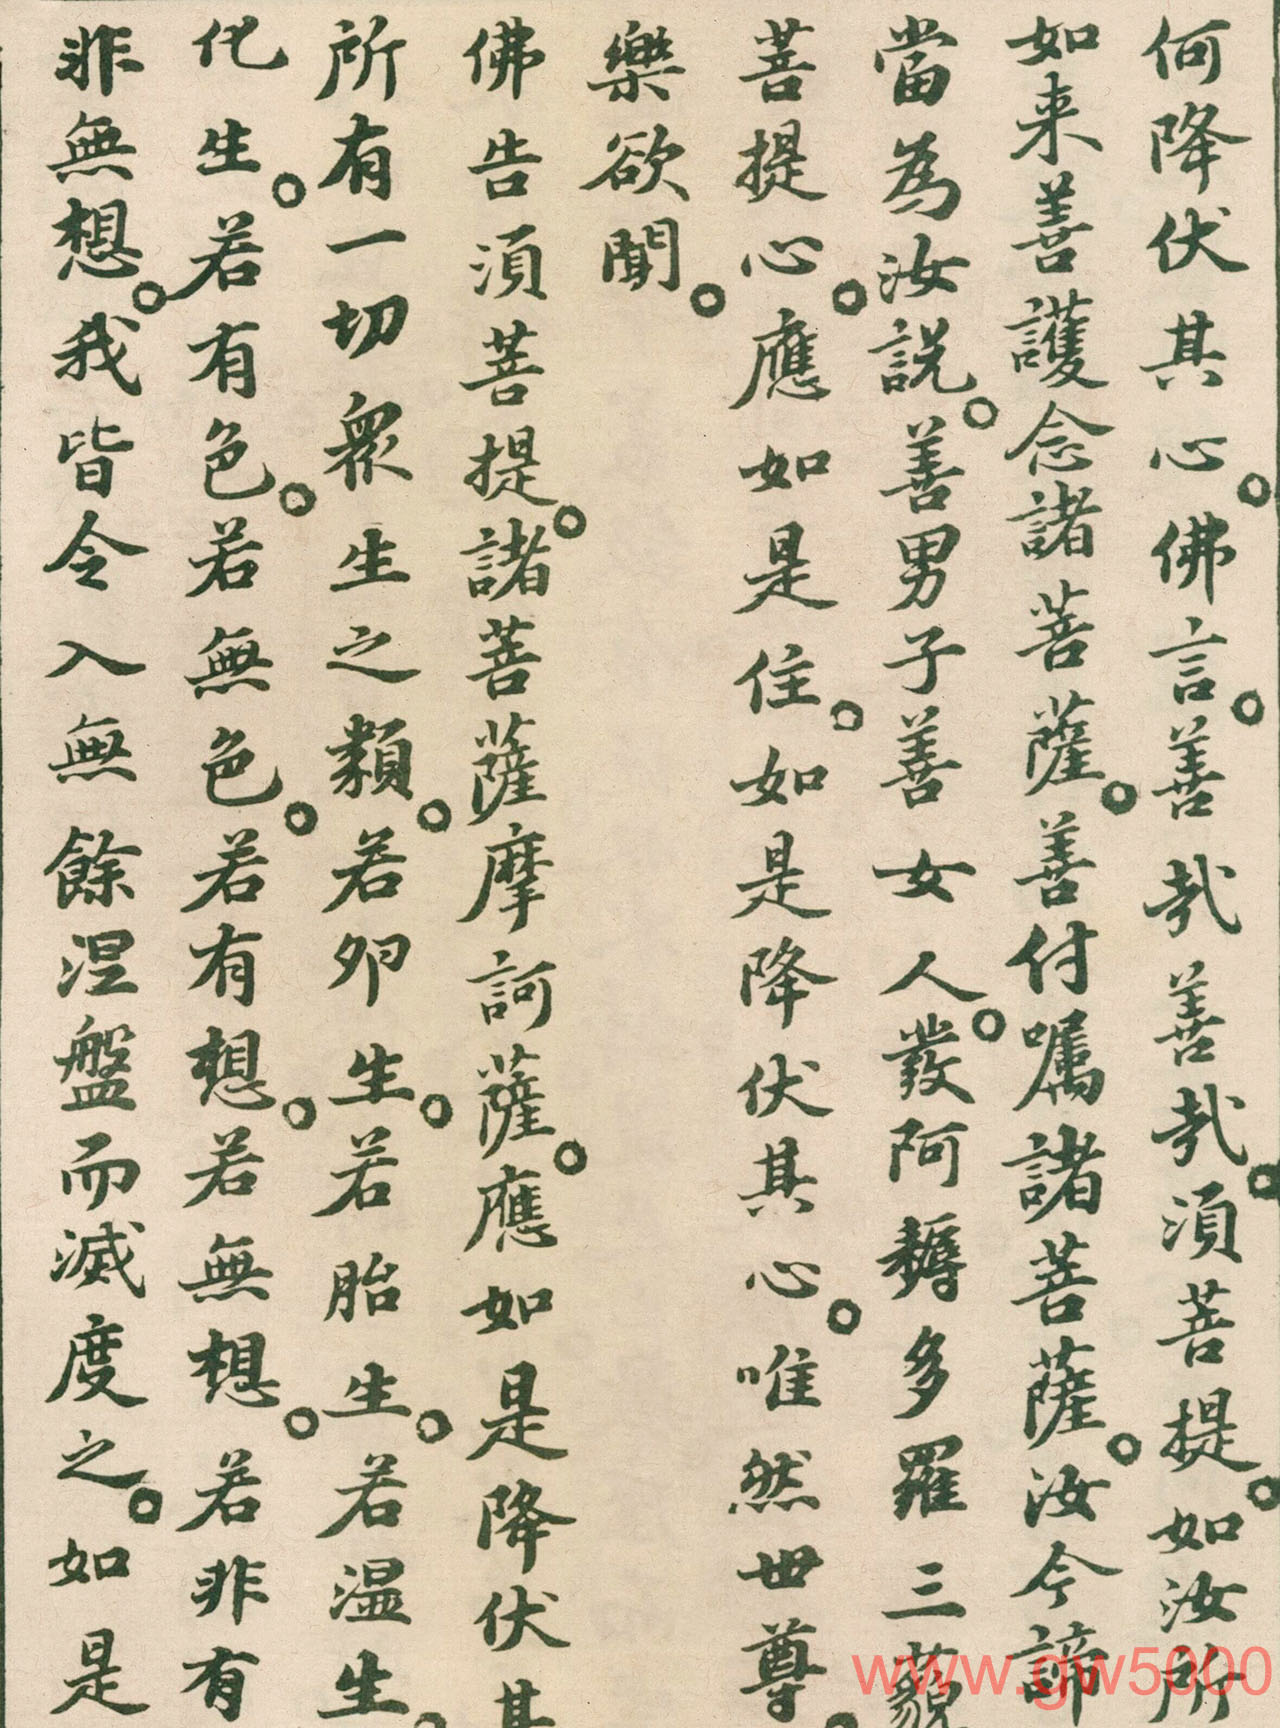 何降伏其心。佛言。善哉善哉。須菩提。如汝所
如来善護念諸菩薩。善付嘱諸菩薩。汝今諦
當為汝説。善男子善女人。發阿耨多羅三藐
菩提心。應如是住。如是降伏其心。唯然世尊。
樂欲聞。
佛告須菩提。諸菩薩摩訶薩。應如是降伏其
所有一切衆生之類。若卵生。若胎生。若温生。
化生。若有色。若無色。若有想。若無想。若非有
非無想。我皆令入無餘涅盤而滅度之。如是
www.gw5000